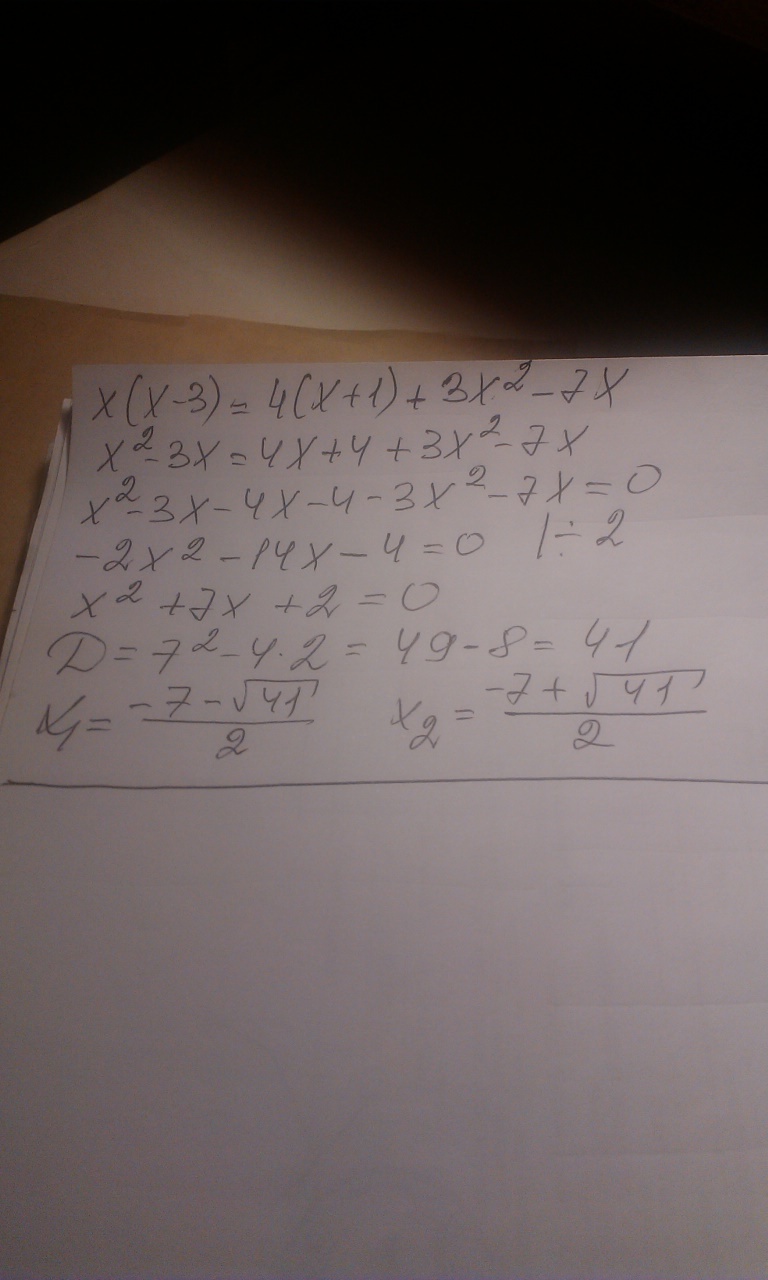 x(x-3) = 4(x+1) + 3x² - 7x
x² - 3x = 4x + 4 + 3x² - 7x
x² - 3x - 4x - 4 - 3x² - 7x = 0
-2x² - 14x - 4 = 0 | ÷ 2
x² + 7x + 2 = 0
D = 7² - 4·2 = 49 - 8 = 41
x₁ = (-7 - √41)/2 x₂ = (-7 + √41)/2